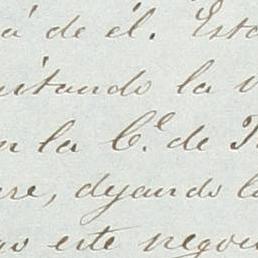 á de él. Esto
itando la v
n la C.e de P
ere, dejando la
no este negoci